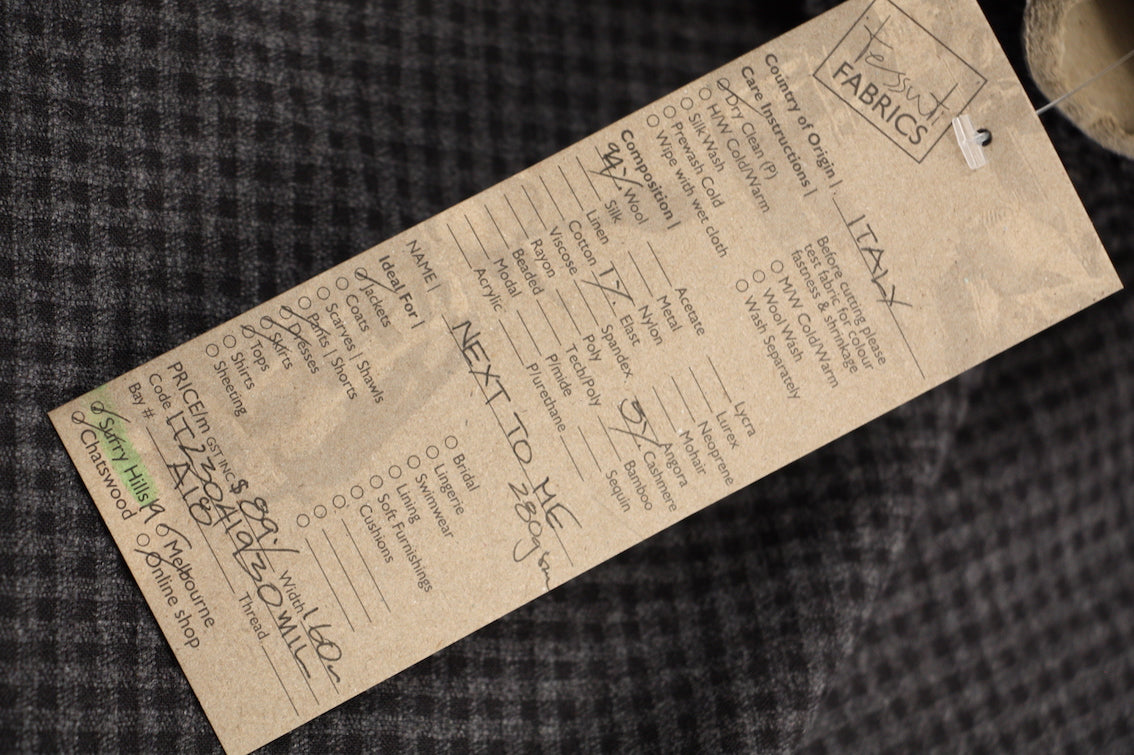 tessuti
FABRICS
Country of Origin | ITALY
Care Instructions |
Dry Clean (P)
H/W Cold/Warm
Silk Wash
Prewash Cold
Wipe with wet cloth
Before cutting please
test fabric for colour
fastness & shrinkage
M/W Cold/Warm
Wool Wash
Wash Separately
Composition |
94% Wool
Silk
Linen
Cotton
Viscose
Rayon
Beaded
Modal
Acrylic
Acetate
Metal
Nylon
1% Elast
Spandex
Poly
Tech/Poly
P/mide
P/urethane
Lycra
Lurex
Neoprene
Mohair
Angora
5% Cashmere
Bamboo
Sequin
NAME | NEXT TO ME
280gsm
Ideal For |
Jackets
Coats
Scarves | Shawls
Pants | Shorts
Dresses
Skirts
Tops
Shirts
Sheeting
Bridal
Lingerie
Swimwear
Lining
Soft Furnishings
Cushions
PRICE/m GST INC $ 89/ Width 160
Code
Bay # A18 Thread
Surry Hills
Melbourne
Chatswood
Online shop